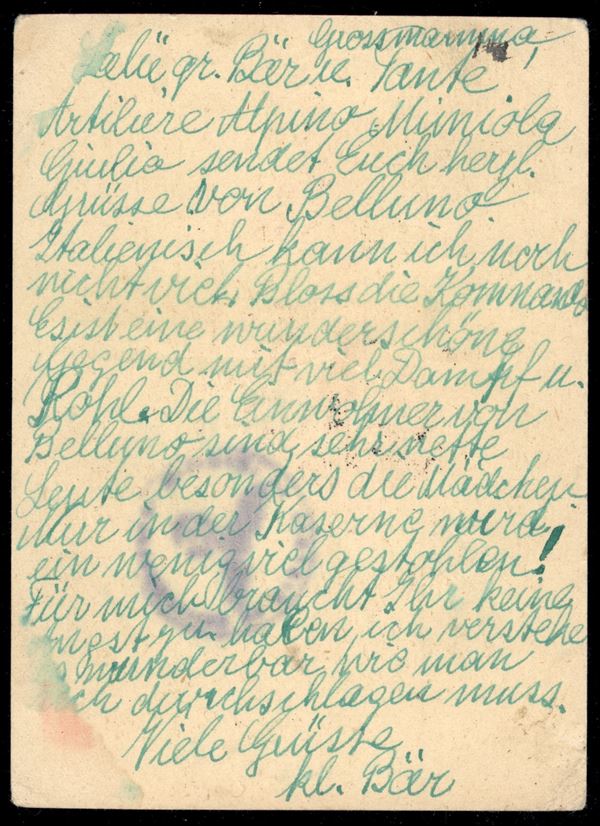 Grossmamma,
gr. Bär u. Tante
Artiliere Alpino Mimiola
Giulio sendet Euch herzl.
Grüsse von Belluno
Italienisch kann ich noch
nicht viel. Bloss die Komando
Es ist eine wunderschöne
Gegend mit viel Dampf u.
Kohl. Die Einwohner von
Belluno sind sehr nette
Leute besonders die Mädchen
Nur in der Kaserne wird
ein wenig viel gestohlen!
Für mich braucht Ihr keine
ngst zu haben ich verstehe
s wunderbar wie man
ich durchschlagen muss.
Viele Grüsse
kl. Bär